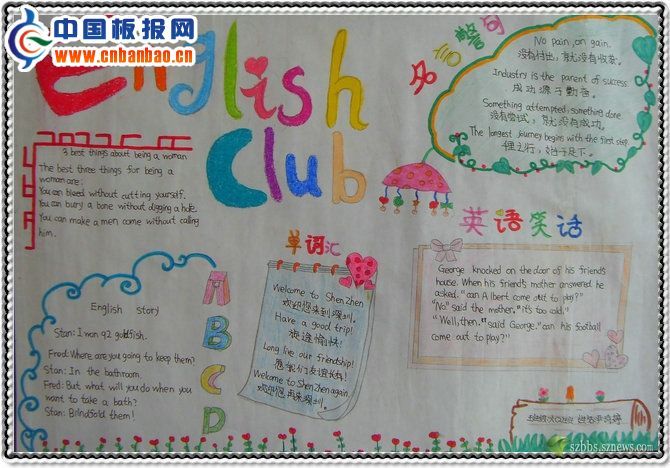 中国板报网
www.cnbanbao.cn
English
Club
名言警句
No pain, on gain.
没有付出，就没有收获。
Industry is the parent of success.
成功源于勤奋。
Something attempted, something done
没有尝试，就没有成功。
The longest journey begins with the first step.
千里之行，始于足下。
3 best things about being a woman
The best three things for being a
woman are:
You can bleed without cutting yourself.
You can bury a bone without digging a hole.
You can make a men come without calling
him.
英语笑话
George knocked on the door of his friend's
house. When his friend's mother answered he
asked. "can Albert come out to play?"
"No." said the mother. "it's too cold."
"Well, then," said George." can his football
come out to play?"
单词汇
Welcome to ShenZhen
欢迎您来到深圳。
Have a good trip!
旅途愉快！
Long live our friendship!
愿我们友谊长存！
Welcome to Shenzhen again.
欢迎您再来深圳。
English Story
Stan: I won 92 goldfish.
Fred: Where are you going to keep them?
Stan: In the bathroom.
Fred: But what will you do when you
want to take a bath?
Stan: Blindfold them!
A
B
C
D
szbbs.sznews.com